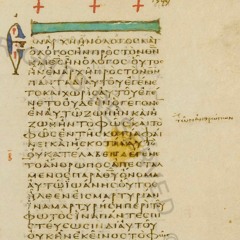 ЄΝΑΡΧΗΗΝΟΛΟΓΟϹΚΑΙ
ΟΛΟΓΟϹΗΝΠΡΟϹΤΟΝΘΝ
ΚΑΙΘϹΗΝΟΛΟΓΟϹΟΥΤΟϹ
ΗΝЄΝΑΡΧΗΠΡΟϹΤΟΝ
ΘΝΠΑΝΤΑΔΙΑΥΤΟΥЄΓЄ
ΝЄΤΟΚΑΙΧΩΡΙϹΑΥΤΟΥЄΓЄ
ΝЄΤΟΟΥΔЄЄΝΟΓЄΓΟΝЄ
ЄΝΑΥΤΩΖΩΗΗΝΚΑΙΗ
ΖΩΗΗΝΤΟΦΩϹΚΑΙΤΟ
ΦΩϹЄΝΤΗϹΚΟΤΙΑΦΑΙ
ΝЄΙΚΑΙΗϹΚΟΤΙΑΑΥΤΟ
ΟΥΚΑΤЄΛΑΒЄΝЄΓЄΝЄ
ΤΟΑΝΘΡΩΠΟϹΑΠЄϹΤΑΛ
ΜЄΝΟϹΠΑΡΑΘΥΟΝΟΜΑ
ΑΥΤΩΙΩΑΝΝΗϹΟΥΤΟϹ
ΗΛΘЄΝЄΙϹΜΑΡΤΥΡΙΑΝ
ΙΝΑΜΑΡΤΥΡΗϹΗΠЄΡΙΤΟΥ
ΦΩΤΟϹΙΝΑΠΑΝΤЄϹΠΙ
ϹΤЄΥϹΩϹΙΔΙΑΥΤΟΥ
ΟΥΚΗΝЄΚЄΙΝΟϹΤΟ
τῶν ἀνθρώπων